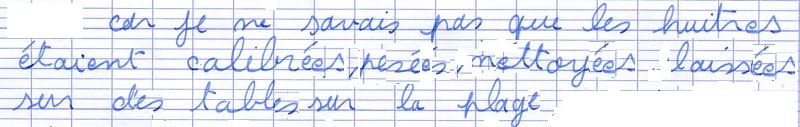 car je ne savais pas que les huitres
étaient calibrées, pesées, nettoyées laissées
sur des tables sur la plage